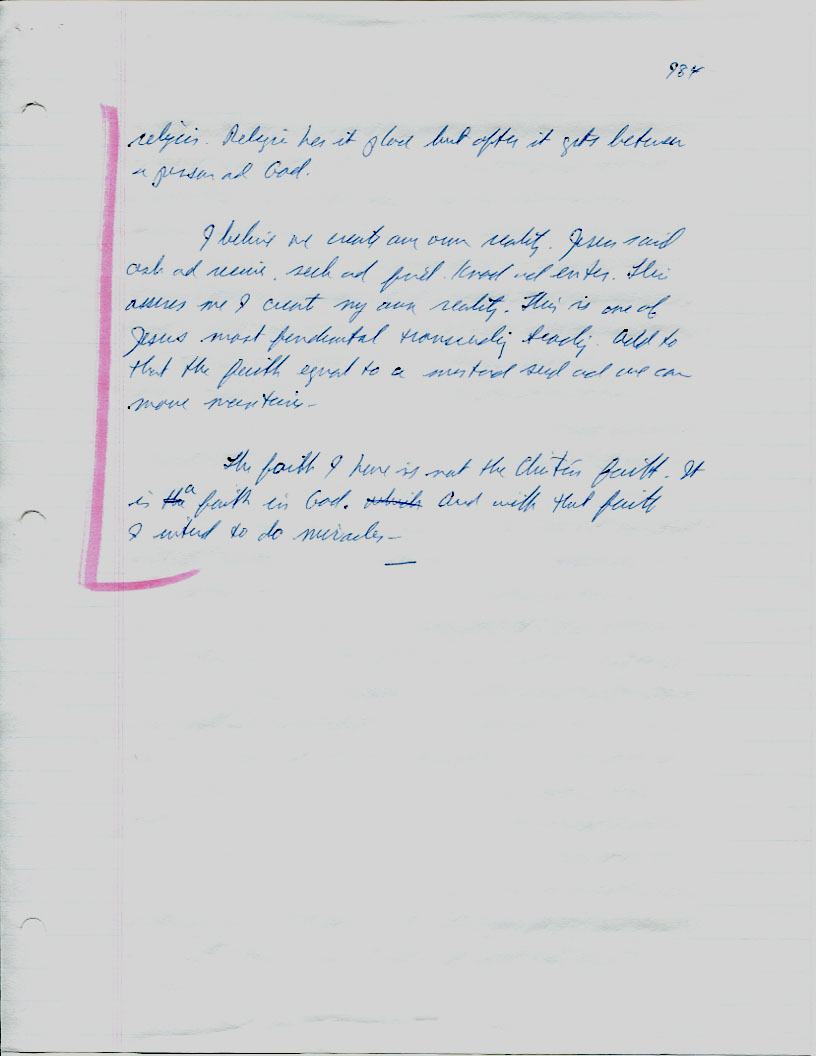 984
religion. Religion has it place but often it gets between
a person and God.
I believe we create our own reality. Jesus said
ask and receive, seek and find. Knock and enter. This
assures me I creat my own reality. This is one of
Jesus most fundamental transcending teaching. Add to
that the faith equal to a mustard seed and we can
move mountains-
The faith I have is not the Christian faith. It
is the a faith in God. which And with that faith
I intend to do miracles-